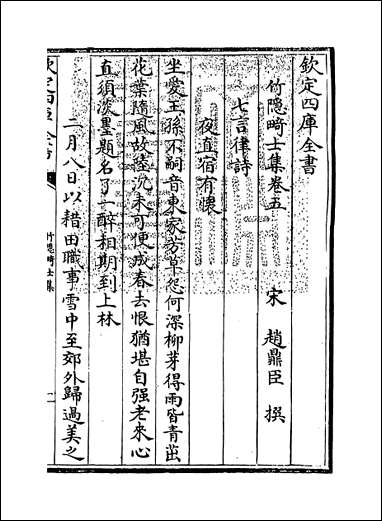 欽定四庫全書
竹隱畸士集卷五
宋　趙鼎臣　撰
七言律詩
夜直宿有懷
坐愛王孫不嗣音東家芳草怨何深柳芽得雨皆青出
花葉隨風故陸沉未可便成春去恨猶堪自强老來心
直須淡墨題名了一醉相期到上林
二月八日以耤田職事雪中至郊外歸過美之
竹隱畸士集